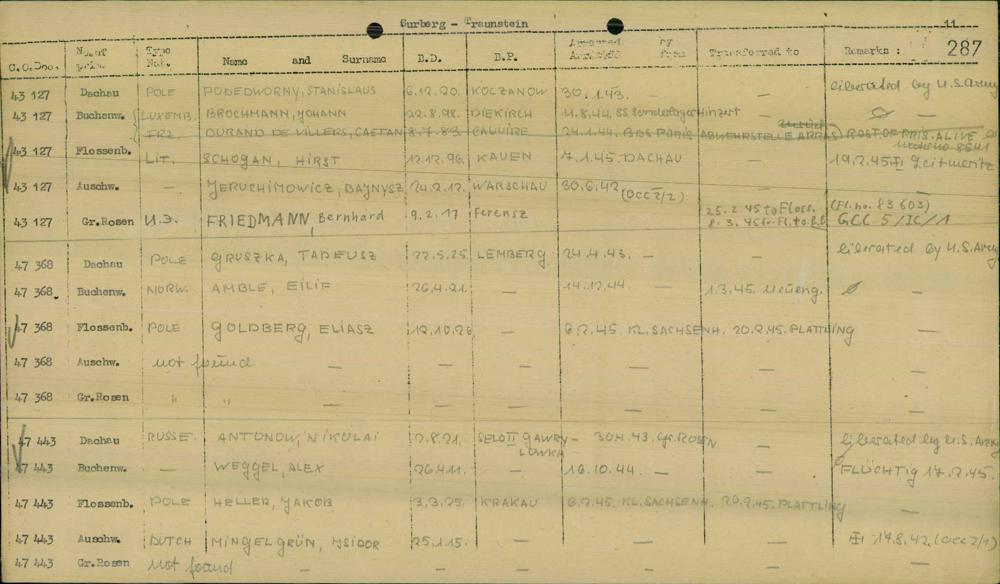 Surberg - Traunstein
11
287
C.C.Doc. No. of pris. Type Nat. Name and Surname B.D. B.P. Arrested Arrived by from Transferred to Remarks :
43 127 Dachau POLE PODEDWORNY, STANISLAUS 6.12.20. KOLZANOW 30.1.43. — — liberated by U.S. Army
43 127 Buchenw. LUXEMB. BROCHMANN, YOHANN 22.8.98. DIEKIRCH 11.8.44. SS Sonderlager Hinzert —
FRZ. DURAND DE VILLERS, CAETAN 8.7.83 CAUVIRE 24.1.44. BDS PARIS ABWEHRSTELLE ARRAS ROST. OF PRIS. ALIVE
43 127 Flossenb. LIT. SCHOGAN, HIRST 12.12.96. KAUEN 7.1.45. DACHAU — 19.2.45 Leitmeritz
43 127 Auschw. — JERUCHIMOWICZ, BAJNYSZ 24.2.12. WARSCHAU 30.6.42 (OCC 2/2) — —
43 127 Gr.Rosen U.J. FRIEDMANN, Bernhard 9.2.17 Ferensz — 25.2.45 to Floss. (Fl. no. 83 603)
8.3.45 fr. Fl. to B.B. GCC 5/IC/1
47 368 Dachau POLE GRUSZKA, TADEUSZ 22.5.25. LEMBERG 24.4.43. — — liberated by U.S. Army
47 368. Buchenw. NORW. AMBLE, EILIF 26.4.21. — 14.12.44. — 1.3.45. Neueng. —
47 368 Flossenb. POLE GOLDBERG, ELIASZ 12.10.26 — 6.2.45. KL. SACHSENH. 20.2.45. PLATTLING —
47 368 Auschw. not found — — — — — —
47 368 Gr.Rosen " " — — — — —
47 443 Dachau RUSSE. ANTONOW, NIKOLAI 2.8.21. SELO II GAWRY- 30.4.43. Gr. ROSEN — liberated by U.S. Army
LOWKA
47 443 Buchenw. — WEGGEL, ALEX 26.4.11. — 16.10.44. — — FLÜCHTIG 17.2.45.
47 443 Flossenb. POLE HELLER, JAKOB 3.3.25. KRAKAU 6.2.45. KL. SACHSENH. 20.2.45. PLATTLING —
47 443 Auschw. DUTCH MINGELGRÜN, YSIDOR 25.1.15. — — — 14.8.42. (OCC 2/1)
47 443 Gr.Rosen not found — — — — —